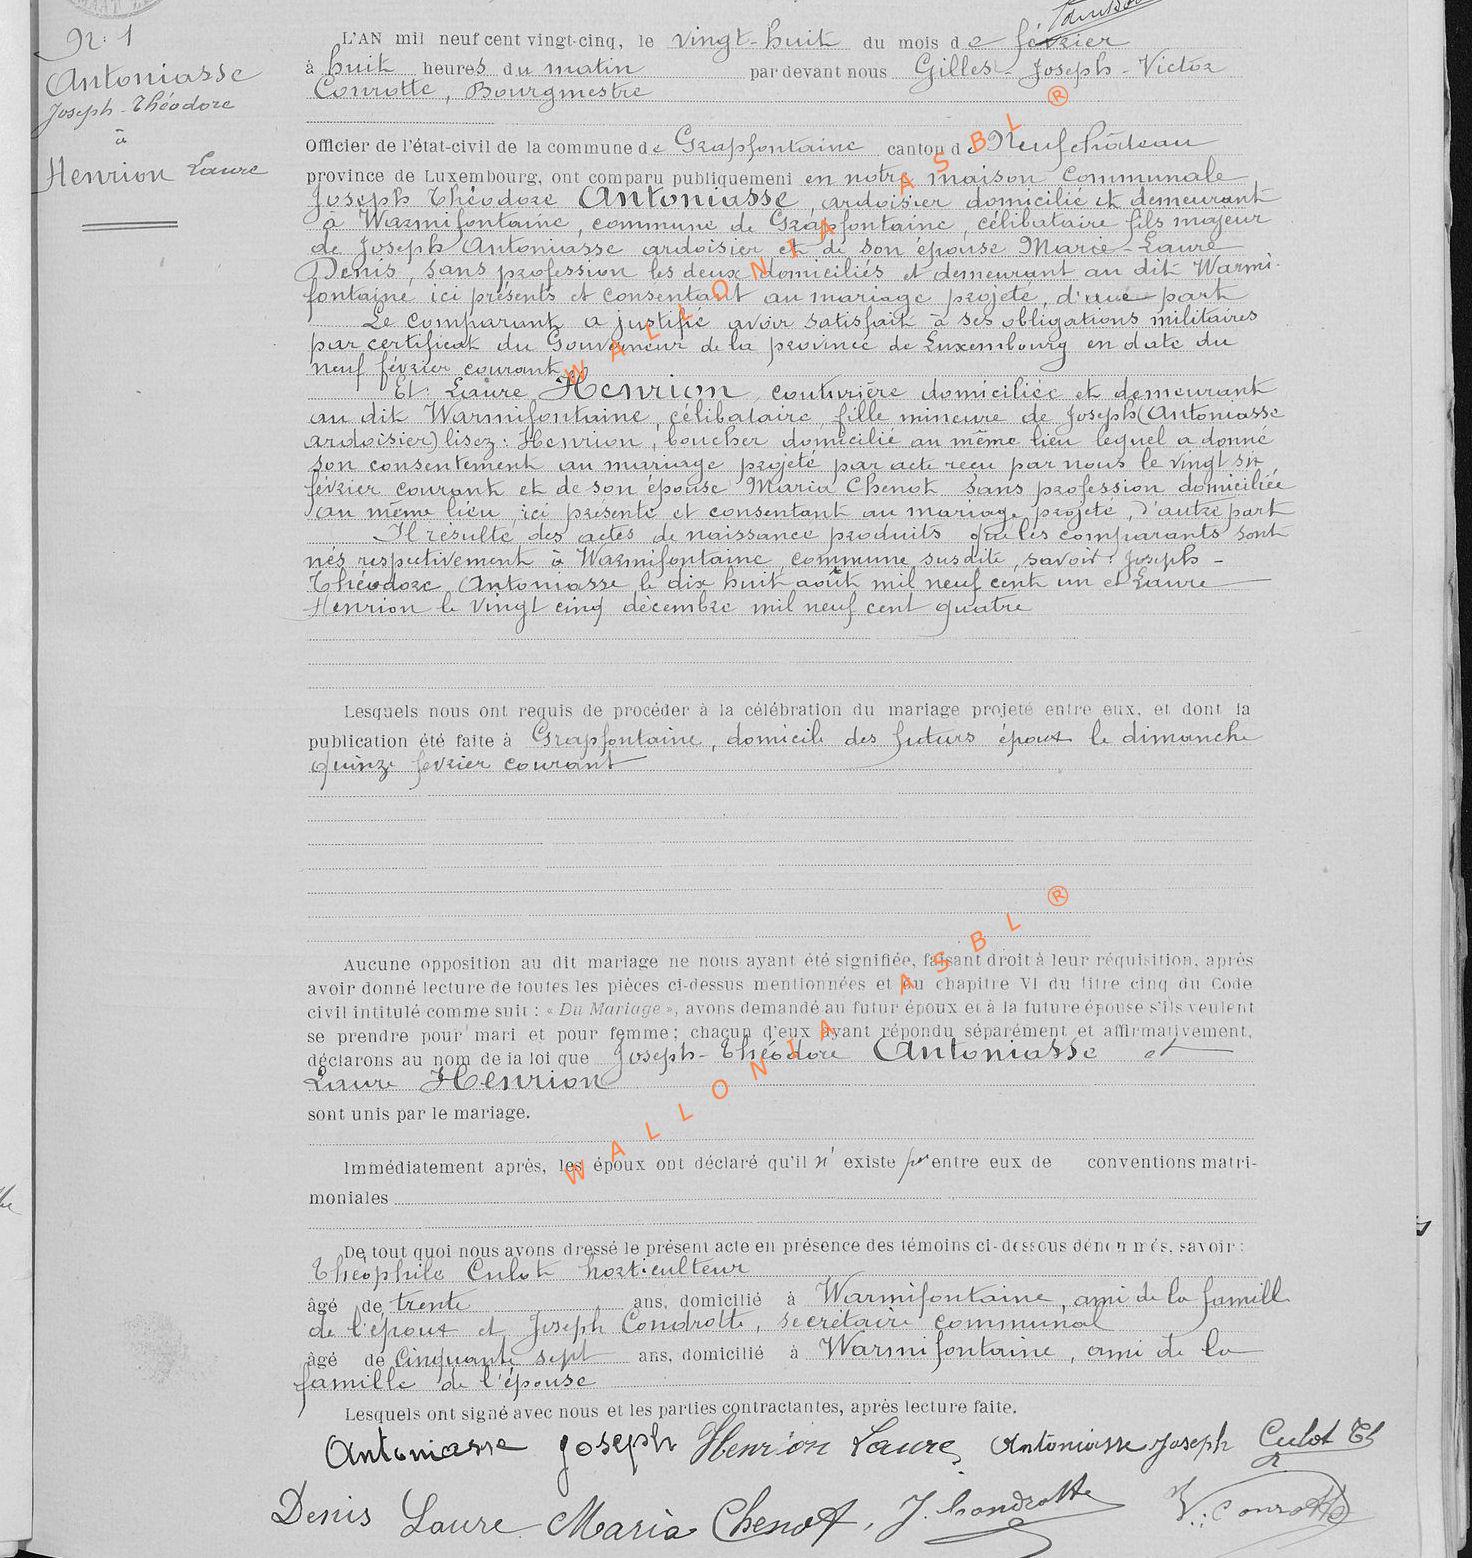 N: 1
Antoniasse
Joseph-Théodore
à
Henrion Laure
L'AN mil neuf cent vingt-cinq, le vingt-huit du mois de février
à huit heures du matin par devant nous Gilles-Joseph-Victor
Conrotte, Bourgmestre
Officier de l'état-civil de la commune de Grapfontaine canton de Neufchâteau
province de Luxembourg, ont comparu publiquement en notre maison communale
Joseph Théodore Antoniasse, ardoisier domicilié et demeurant
à Warmifontaine, commune de Grapfontaine, célibataire fils majeur
de Joseph Antoniasse ardoisier et de son épouse Marie-Laure
Denis, sans profession les deux domiciliés et demeurant au dit Warmi-
fontaine ici présents et consentant au mariage projeté, d'une part
Le comparant a justifié avoir satisfait à ses obligations militaires
par certificat du Gouverneur de la province de Luxembourg en date du
neuf février courant
Et Laure Henrion, couturière domiciliée et demeurant
au dit Warmifontaine, célibataire, fille mineure de Joseph (Antoniasse
ardoisier) lisez: Henrion, boucher domicilié au même lieu lequel a donné
son consentement au mariage projeté par acte reçu par nous le vingt six
février courant et de son épouse Maria Chenot sans profession domiciliée
au même lieu, ici présente et consentant au mariage projeté, d'autre part
Il résulte des actes de naissance produits que les comparants sont
nés respectivement à Warmifontaine, commune susdite, savoir: Joseph-
Théodore Antoniasse le dix huit août mil neuf cent un et Laure
Henrion le vingt cinq décembre mil neuf cent quatre
Lesquels nous ont requis de procéder à la célébration du mariage projeté entre eux, et dont la
publication été faite à Grapfontaine, domicile des futurs époux le dimanche
quinze février courant
Aucune opposition au dit mariage ne nous ayant été signifiée, faisant droit à leur réquisition, après
avoir donné lecture de toutes les pièces ci-dessus mentionnées et du chapitre VI du titre cinq du Code
civil intitulé comme suit : « Du Mariage », avons demandé au futur époux et à la future épouse s'ils veulent
se prendre pour mari et pour femme; chacun d'eux ayant répondu séparément et affirmativement,
déclarons au nom de la loi que Joseph-Théodore Antoniasse et
Laure Henrion
sont unis par le mariage.
Immédiatement après, les époux ont déclaré qu'il n'existe pas entre eux de conventions matri-
moniales
De tout quoi nous avons dressé le présent acte en présence des témoins ci-dessous dénommés, savoir :
Théophile Culot horticulteur
âgé de trente ans, domicilié à Warmifontaine, ami de la famille
de l'époux et Joseph Condrotte, secrétaire communal
âgé de cinquante sept ans, domicilié à Warmifontaine, ami de la
famille de l'épouse
Lesquels ont signé avec nous et les parties contractantes, après lecture faite.
Antoniasse Joseph Henrion Laure Antoniasse Joseph Culot Th
Denis Laure Maria Chenot, J. Condrotte V. Conrotte
WALLONIA ASBL ®
WALLONIA ASBL ®